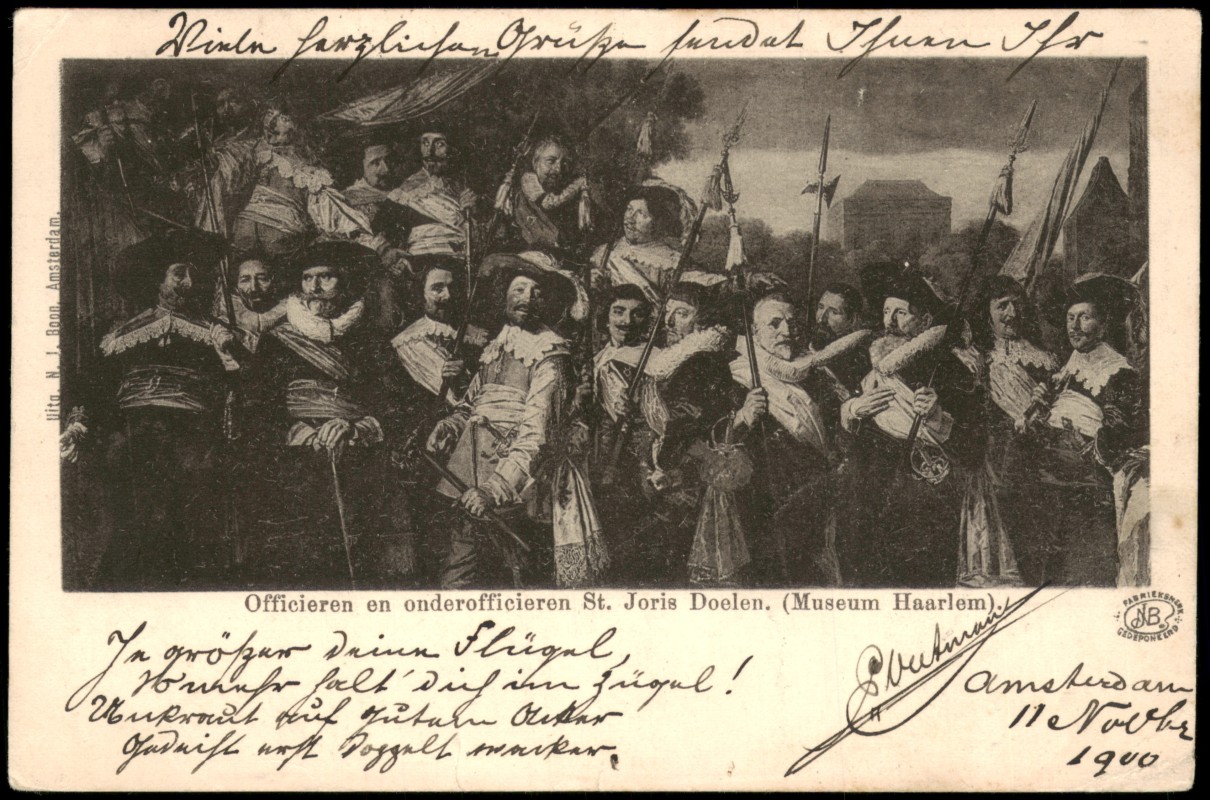 Viele herzlichen Grüße sendet Ihnen Ihr
Uitg. N. J. Boon, Amsterdam.
Officieren en onderofficieren St. Joris Doelen. (Museum Haarlem).
FABRIEKSMERK
NJB.
GEDEPONEERD
Je größer deine Flügel,
so mehr halt' dich im Zügel!
Unkraut auf gutem Acker
Gedeiht erst doppelt wacker.
Amsterdam
11 Novbr
1900